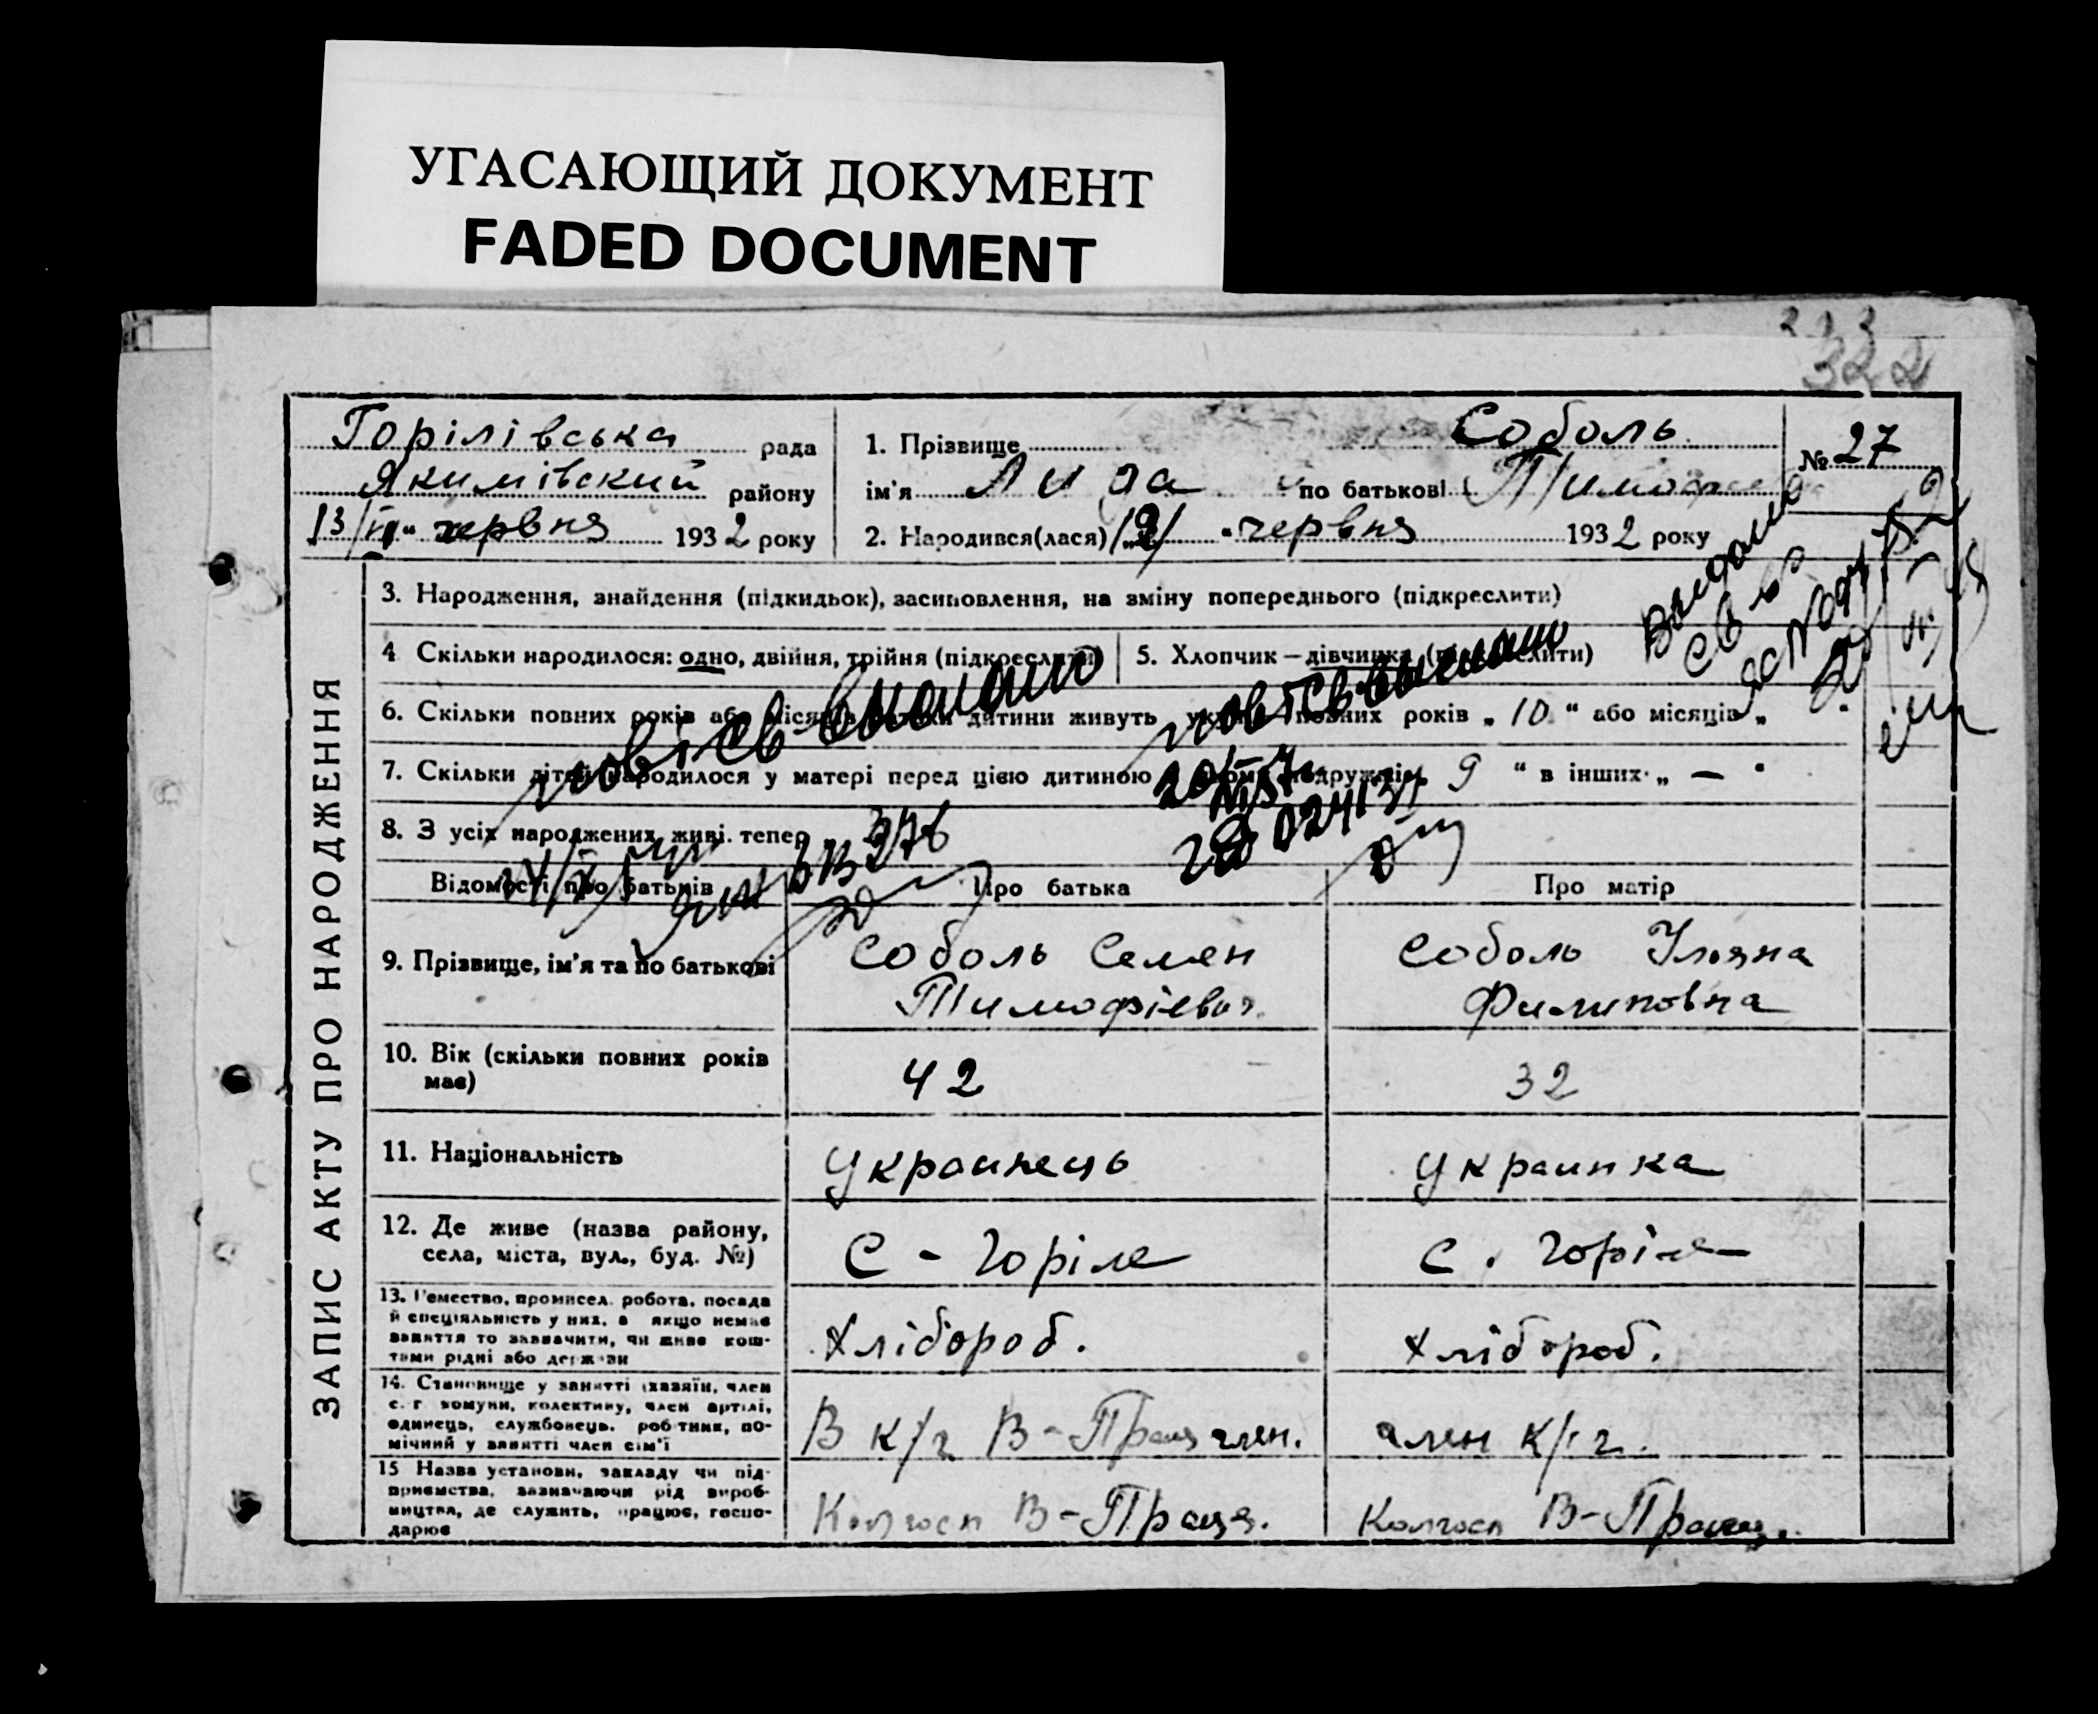 УГАСАЮЩИЙ ДОКУМЕНТ
FADED DOCUMENT
322
Горілівська рада
Якимівский району
13/VI „ червня 1932 року
1. Прізвище Соболь
ім'я по батькові
2. Народився(лася) червня 1932 року
№ 27
ЗАПИС АКТУ ПРО НАРОДЖЕННЯ
3. Народження, знайдення (підкидьок), засиновлення, на зміну попереднього (підкреслити)
4 Скільки народилося: одно, двійня, трійня (підкреслити)
5. Хлопчик — дівчинка (підкреслити)
6. Скільки повних років або місяців батьки дитини живуть укупі повних років „ 10 “ або місяців „ “
7. Скільки дітей народилося у матері перед цією дитиною подружжі 9 “ в інших „ — “
8. З усіх народжених живі тепер
Видано
повт св выслано
Відомості про батьків
Про батька
Про матір
9. Прізвище, ім'я та по батькові
Соболь Семен
Тимофієвич
Соболь Уляна
Филиповна
10. Вік (скільки повних років має)
42
32
11. Національність
Украинець
Украинка
12. Де живе (назва району, села, міста, вул., буд. №)
С - Горіле
С. Горіле
13. Ремество, промисел, робота, посада
й спеціяльність у них, а якщо немає
заняття то зазначити, чи живе кош-
тами рідні або держави
Хлібороб.
Хлібороб.
14. Становище у занятті (хазяїн, член
с. г комуни, колективу, член артілі,
одинець, службовець, робітник, по-
мічний у занятті член сім'ї
В к/г В-Праця член.
член к/г.
15 Назва установи, закладу чи під-
приємства, зазначаючи рід вироб-
ництва, де служить, працює, госпо-
дарює
Колгосп В-Праця.
Колгосп В-Праця.